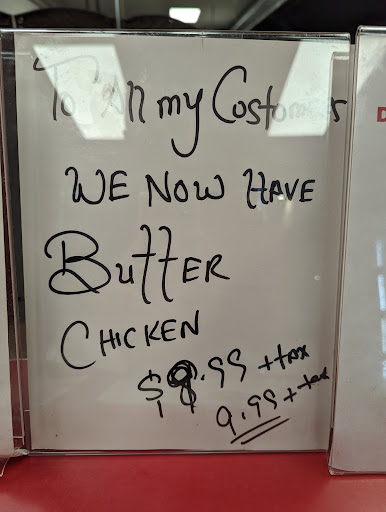 To All my Costomers
WE NOW HAVE
Butter
CHICKEN
$9.99 + tax
9.99 + tax
D